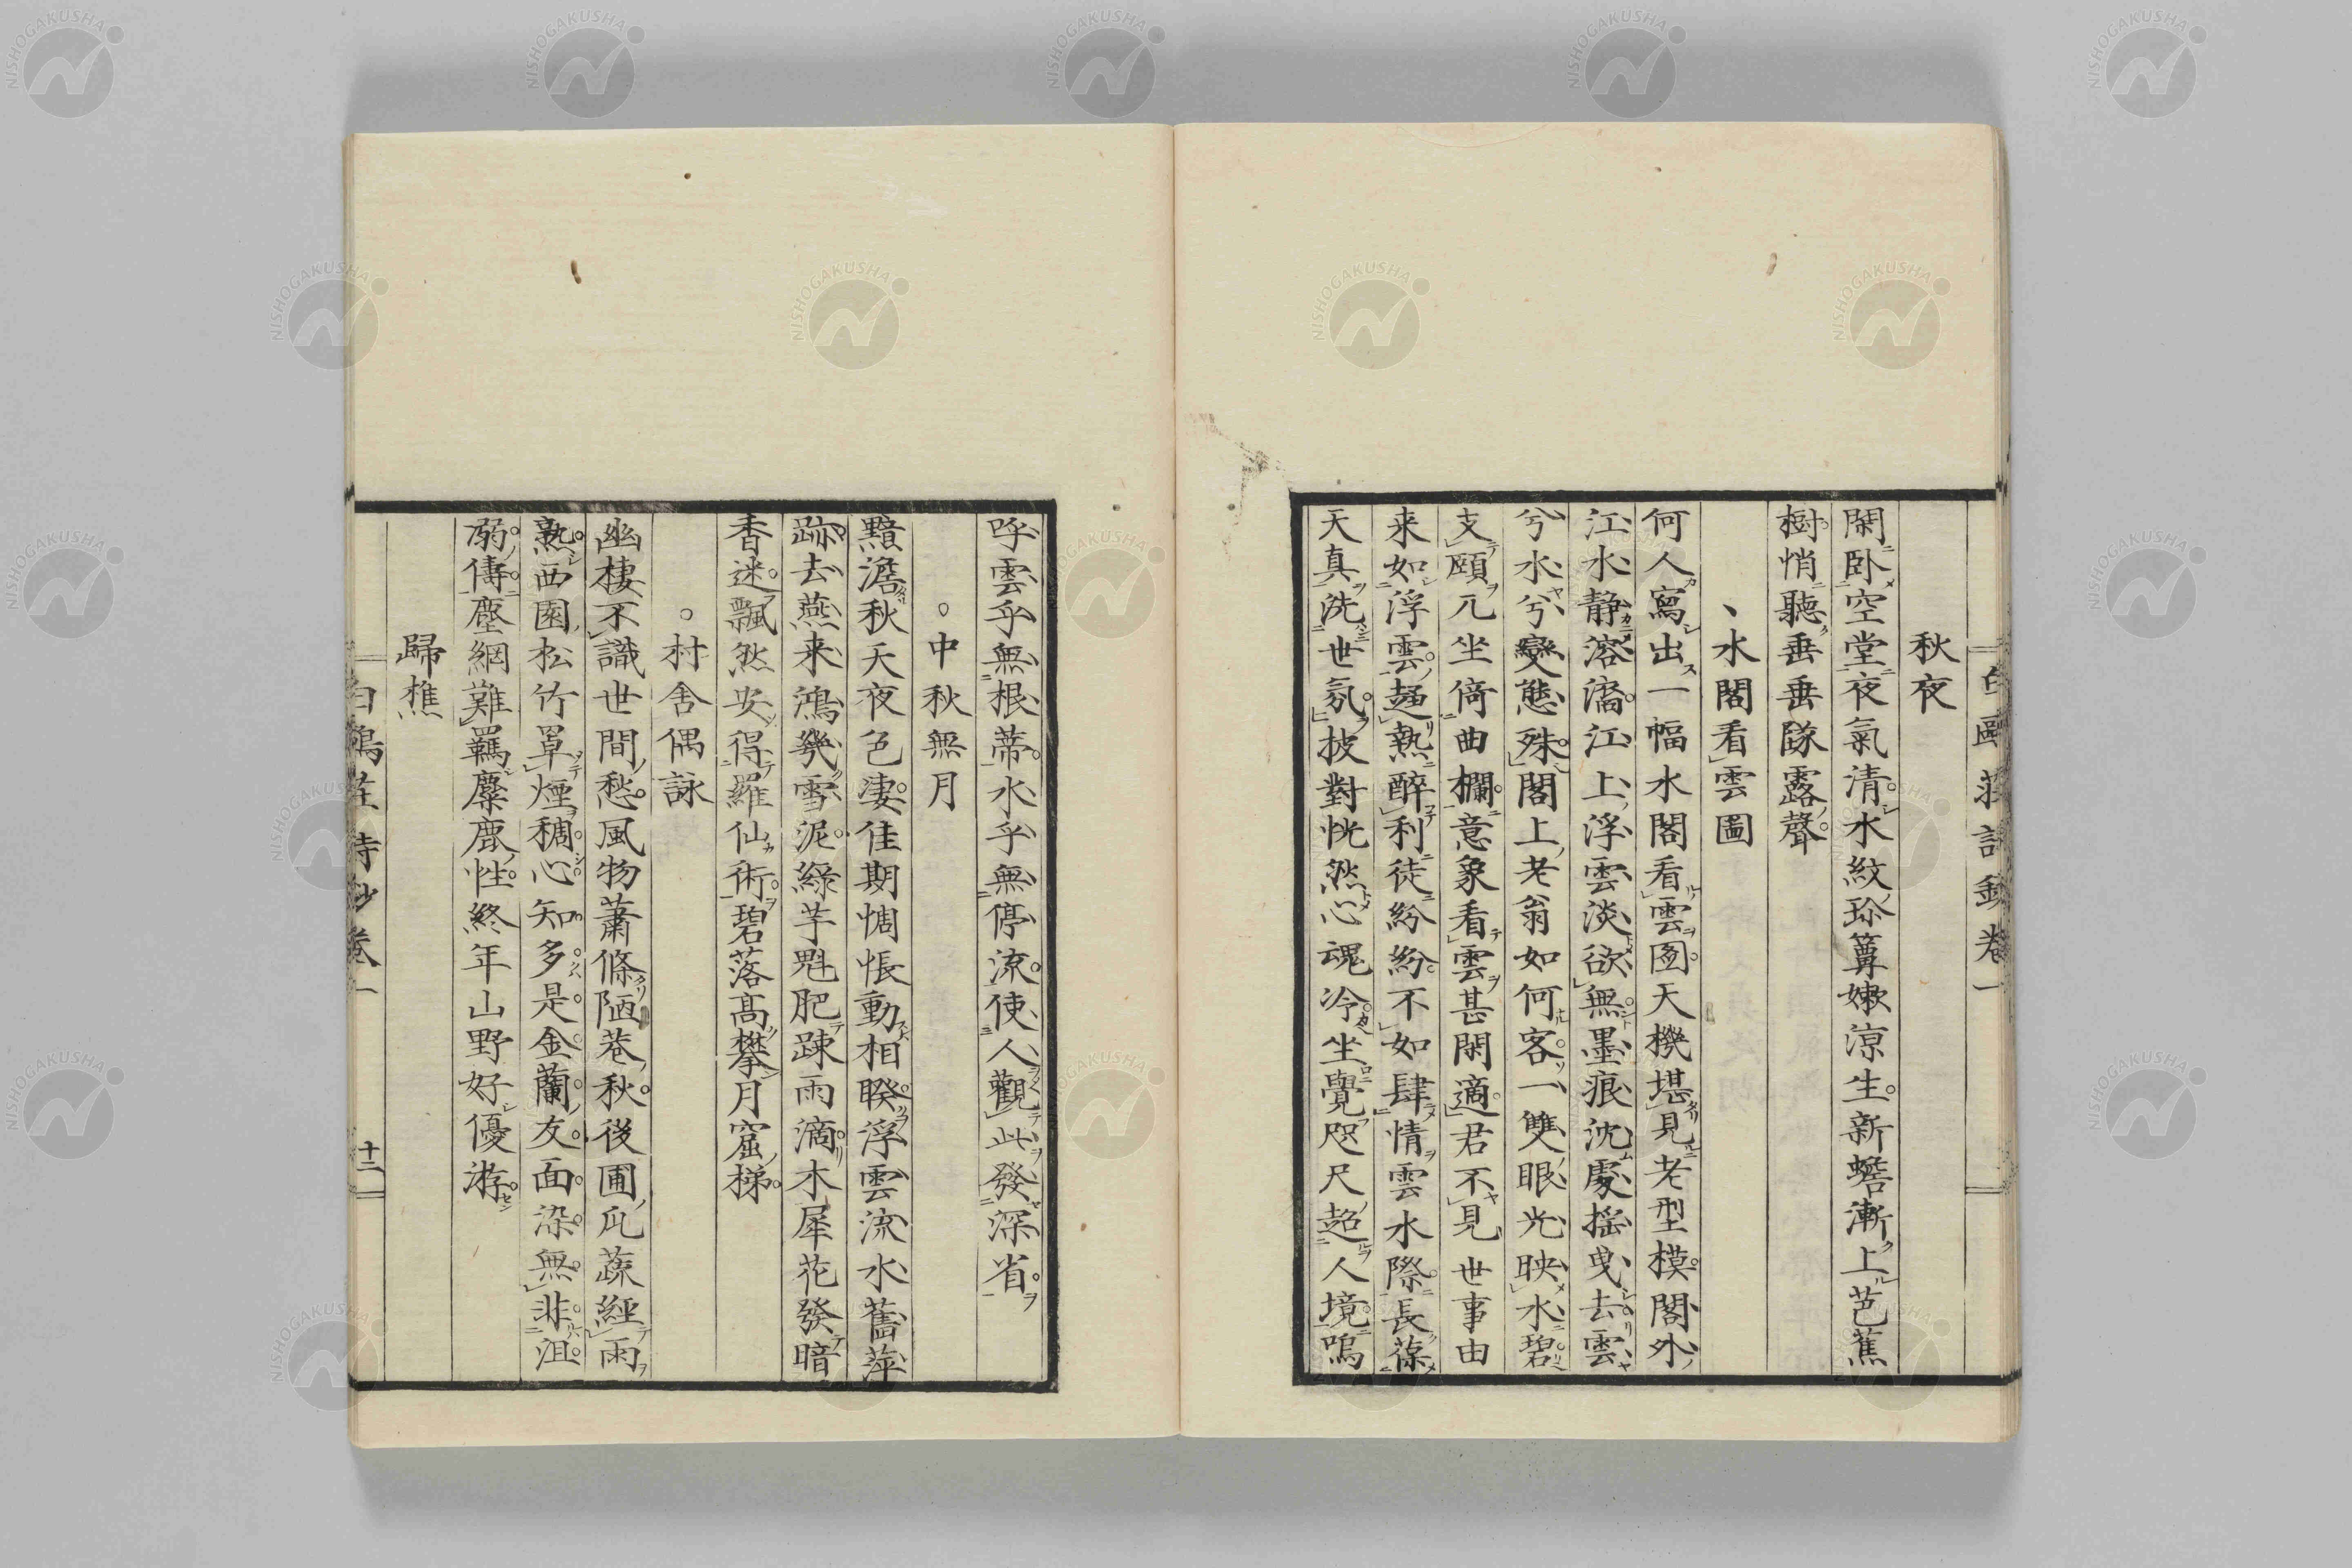 秋夜
閑卧空堂夜氣清水紋珍簟嫩涼生新蟾漸上芭蕉
樹悄聽垂垂隊露聲
、水閣看雲圖
何人寫出一幅水閣看雲圖天機堪見老型模閣外
江水静溶潏江上浮雲淡欲無墨痕沈處揺曳去雲
兮水兮變態殊閣上老翁如何客一雙眼光映水碧
支頤兀坐倚曲欄意象看雲甚閑適君不見世事由
来如浮雲趨熱醉利徒紛紛不如肆情雲水際長葆
天真洗世氛披對恍然心魂冷坐覺咫尺超人境嗚
呼雲乎無根蒂水乎無停流使人觀此發深省
○中秋無月
黯澹秋天夜色淒佳期惆悵動相睽浮雲流水舊萍
跡去燕来鴻幾雪泥綠芋魁肥疎雨滴木犀花發暗
香迷飄然安得羅仙術碧落高攀月窟梯
○村舍偶詠
幽棲不識世間愁風物蕭條陋巷秋後圃瓜蔬經雨
熟西園松竹罩煙稠心知多是金蘭友面染無非沮
溺儔塵網難羈麋鹿性終年山野好優游
歸樵
十二
NISHOGAKUSHA